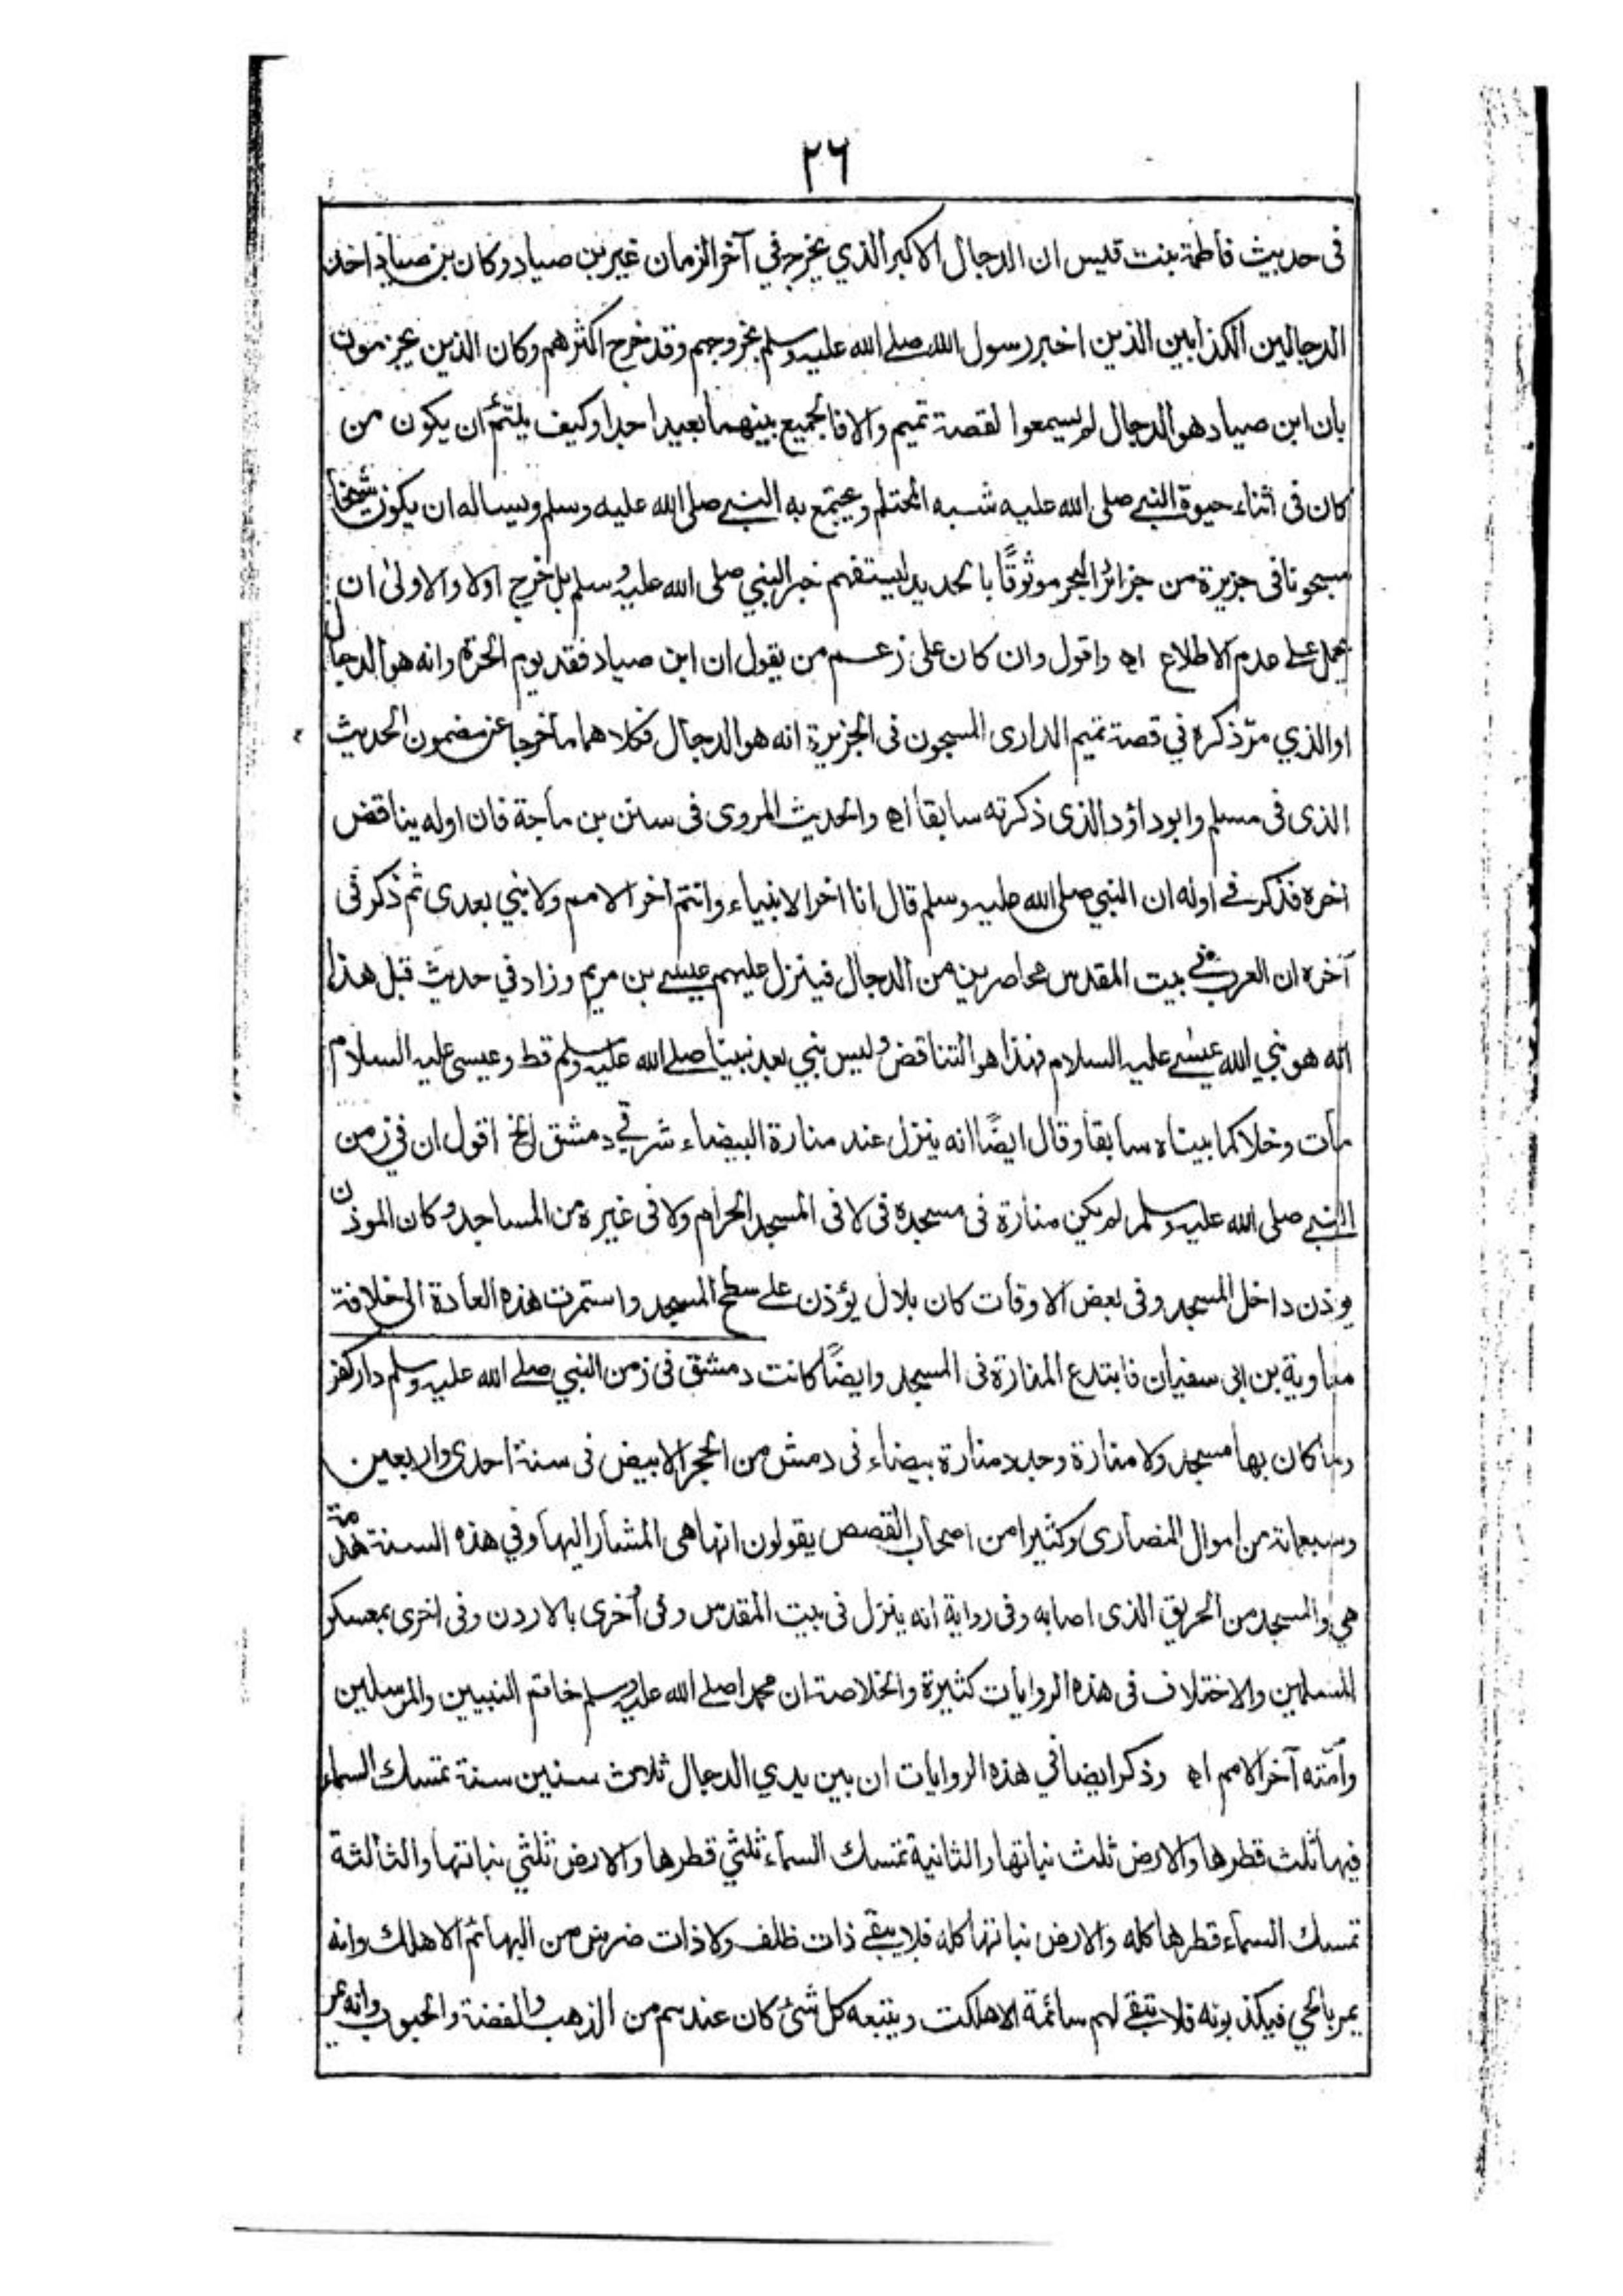 ٢٦
فى حديث فاطمة بنت قيس ان الدجال الاكبر الذي يخرج في آخر الزمان غير بن صياد وكان بن صياد احد
الدجالين الكذابين الذين اخبر رسول الله صلے الله عليه وسلم بخروجهم وقد خرج اكثرهم وكان الذين يجزمون
بأن ابن صياد هو الدجال لم يسمعوا لقصة تميم والا فالجميع بينهما بعيدا جدا وكيف يلتئم ان يكون من
كان فى اثناء حيوة النبے صلى الله عليه شبه المحتلم ويجتمع به النبے صلى الله عليه وسلم ويساله ان يكون شيخا
مسجونا فى جزيرة من جزائر البحر موثوقًا بالحديد ليستفهم خبر النبي صلى الله عليه وسلم بل خرج اولا والاولىٰ ان
يحمل علے عدم الاطلاع اھ واقول وان كان على زعم من يقول ان ابن صياد فقد يوم الحرة وانه هو الدجال
او الذي مرّ ذكره في قصة تميم الدارى المسجون فى الجزيرة انه هو الدجال فكلاهما ما خرجا عن مضمون الحديث
الذى فى مسلم وابو داؤد الذى ذكرته سابقا اھ والحديث المروى فى سنن بن ماجة فان اوله يناقض
اخره فذكر فے اوله ان النبي صلى الله عليه وسلم قال انا اخر الانبياء وانتم اخر الامم ولا نبي بعدى ثم ذكر فى
آخره ان العرب فے بيت المقدس محاصرين من الدجال فينزل عليهم عيسے بن مريم وزاد في حديث قبل هذا
انه هو نبي الله عيسے عليه السلام فهذا هو التناقض وليس نبي بعد نبينا صلے الله عليه وسلم قط وعيسى عليه السلام
مات وخلا كما بيناه سابقا وقال ايضًا انه ينزل عند منارة البيضاء شرقے دمشق الخ اقول ان في زمن
النبے صلى الله عليه وسلم لم يكن منارة فى مسجده فى لا فى المسجد الحرام ولا فى غيره من المساجد وكان الموذن
يوذن داخل المسجد وفى بعض الاوقات كان بلال يؤذن علے سطح المسجد واستمرت هذه العادة الى خلافة
معاوية بن ابى سفيان فابتدع المنارة فى المسجد وايضًا كانت دمشق فى زمن النبي صلے الله عليه وسلم دار كفر
وما كان بها مسجد ولا منارة وجدد منارة بيضاء فى دمشق من الحجر الابيض فى سنة احدى واربعين
وسبعمائة من اموال النصارى وكثيرا من اصحاب القصص يقولون انها هى المشار اليها وفي هذه السنة هدمة
هي والمسجد من الحريق الذى اصابه وفى رواية انه ينزل فى بيت المقدس وفى أخرى بالاردن وفى اخرى بمعسكر
المسلمين والاختلاف فى هذه الروايات كثيرة والخلاصة ان محمدا صلے الله عليه وسلم خاتم النبيين والمرسلين
وامّته آخر الامم اھ وذكر ايضا في هذه الروايات ان بين يدي الدجال ثلاث سنين سنة تمسك السماء
فيها ثلث قطرها والارض ثلث نباتها والثانية تمسك السماء ثلثي قطرها والارض ثلثي نباتها والثالثة
تمسك السماء قطرها كله والارض نباتها كله فلا يبقے ذات ظلف ولا ذات ضرس من البهائم الا هلك وانه
يمر بالحي فيكذبونه فلا تبقے لهم سائمة الا هلكت ويتبعه كل شئ كان عندهم من الذهب والفضة والحبوب وانه يمر